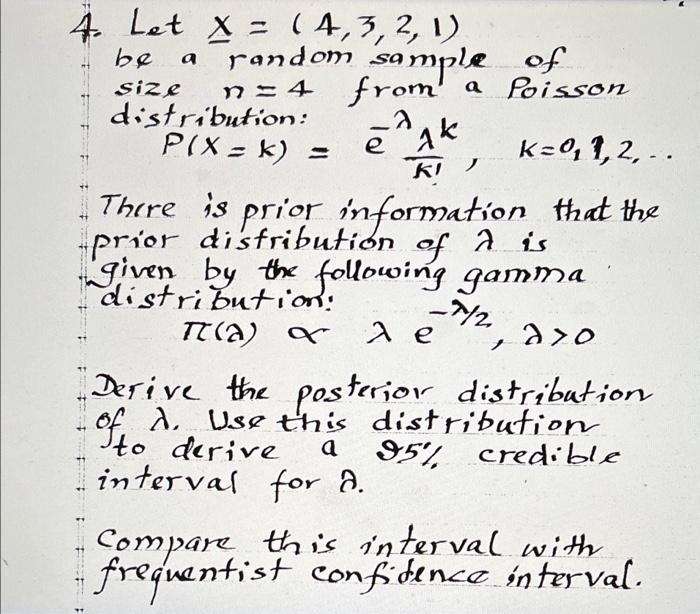 4. Let X = (4,3,2,1)
be a random sample of
size n=4 from a Poisson
distribution:
P(X=k) = e^{-λ} λ^k / k! , k=0,1,2,..
There is prior information that the
prior distribution of λ is
given by the following gamma
distribution:
π(λ) ∝ λ e^{-λ/2}, λ>0
Derive the posterior distribution
of λ. Use this distribution
to derive a 95% credible
interval for λ.
Compare this interval with
frequentist confidence interval.